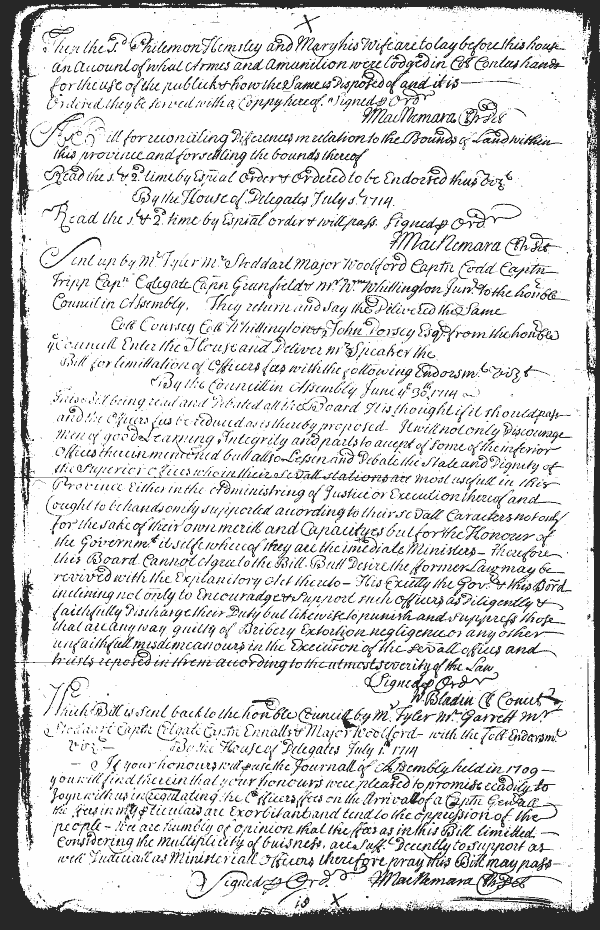 Then the sd Philemon Hemsley and Mary his Wife are to lay before this house
an Account of what Armes and Amunition were lodged in Coll Contees hands
for the use of the publick & how the Same is disposed of and it is
Ordered they be served with a Coppy hereof. Signed p Ordr
MacNemara Cl
Bill for reconciling Differences in relation to the Bounds of Land within
this province and for setling the bounds thereof
Read the 1st & 2d time by Espiall Order & Ordered to be Endorsed thus vizt
By the House of Delegates July 1st 1714.
Read the 1st & 2d time by Espiall order & will pass. Signed p Ordr
MacNemara Cl
Sent up by Mr Tyler Mr Stoddart Major Woolford Captn Codd Captn
Tripp Captn Colegate Captn Greenfield & Mr Wm Whittington Junr to the honble
Councill in Assembly. They return and say the Delivered the Same
Coll Coursey Coll Whittington & John Dorsey Esqr from the honble
Councill Enter the House and Deliver Mr Speaker the
Bill for limittation of Officers fees with the following Endorsmt vizt
By the Councill in Assembly June ye 30th 1714
This Bill being read and Debated att the Board It is thought if it should pass
and the Officers fees be reduced as is thereby proposed It will not only Discourage
men of good Learning Integrity and parts to accept of Some of the inferior
Offices therein mentioned but also Lessen and Debate the State and Dignity of
the Superior Offices who in their Severall stations are most usefull in their
Province Either in the administring of Justice or Execution thereof and
ought to be handsomly supported according to their severall Caracters not only
for the sake of their own merrit and Capacityes but for the Honour of
the Governmt it selfe whereof they are the imediate Ministers - Therefore
this Board Cannot Agree to the Bill. Butt Desire the former Law may be
revived with the Explanitory Act thereto - His Excelly the Govr & this Bord
inclining not only to Encouradge & Support such Officers as Diligently &
faithfully Discharge their Duty but likewise to punish and suppress those
that are any way guilty of Bribery Extortion negligence or any other
unfaithfull misdemeanours in the Execution of the severall offices and
trusts reposed in them according to the utmost severity of the Law
Signed p Ordr
W Bladen Cl Concil
Which Bill is sent back to the honble Councill by Mr Tyler Mr Garrett Mr
Stoddart Captn Colgate Captn Ennalls & Major Woolford - with the Foll Endorsmt
vizt - By the House of Delegates July 1st 1714
If your honours will peruse the Journall of Assembly held in 1709 -
you will find therein that your honours were pleased to promise readily to
Joyn with us in regulating the Officers fees on the Arrivall of a Captn Generall
the fees in are Exorbitant and tend to the oppression of the
people - We are humbly of opinion that the fees as in this Bill limitted -
Considering the multiplicity of buisness, are suffct Decently to support as
well Judiciall as Ministeriall Officers therefore pray this Bill may pass -
Signed p Ordr MacNemara Cl